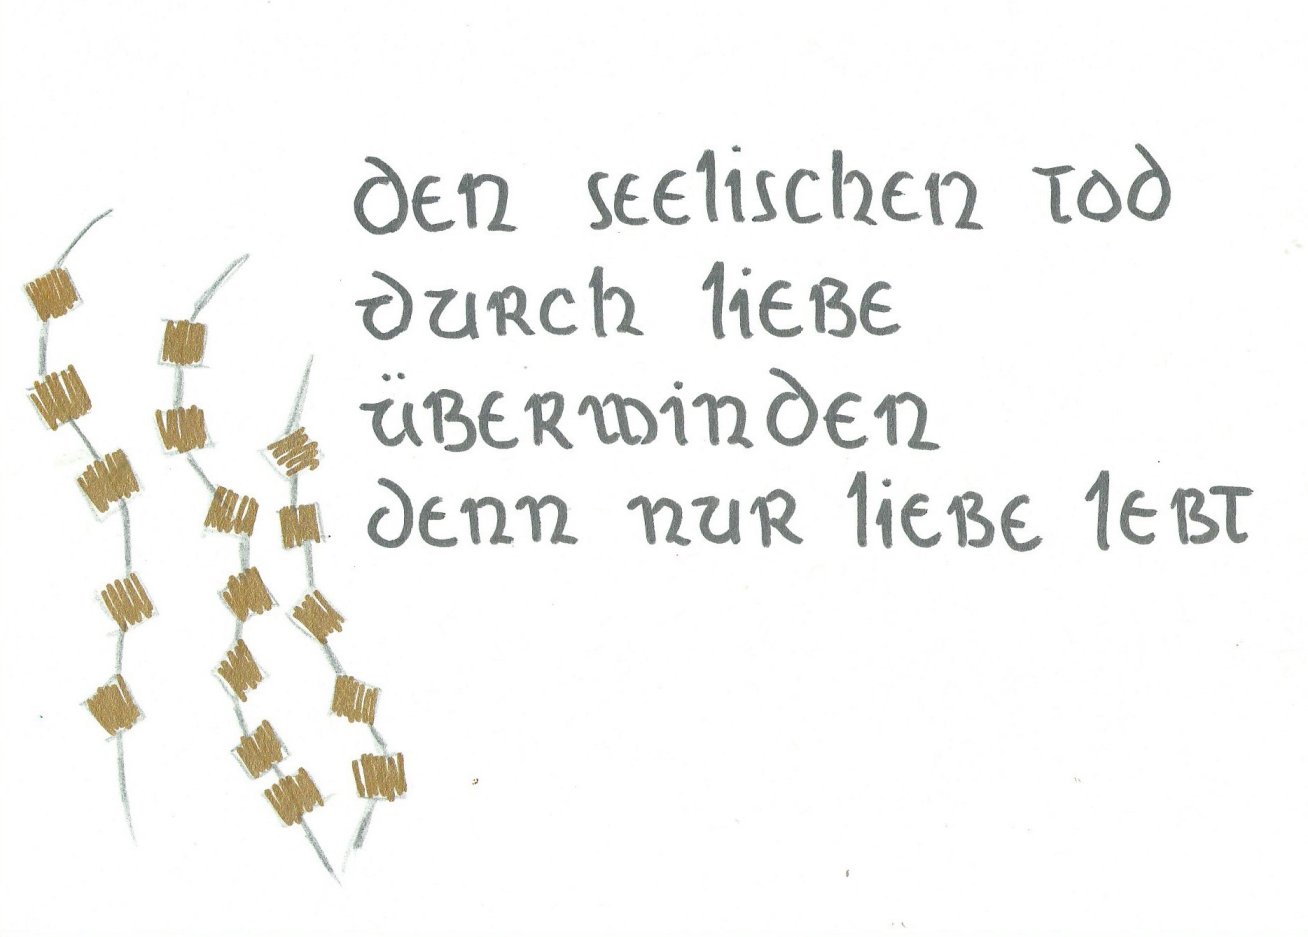 den seelischen tod
durch liebe
überwinden
denn nur liebe lebt